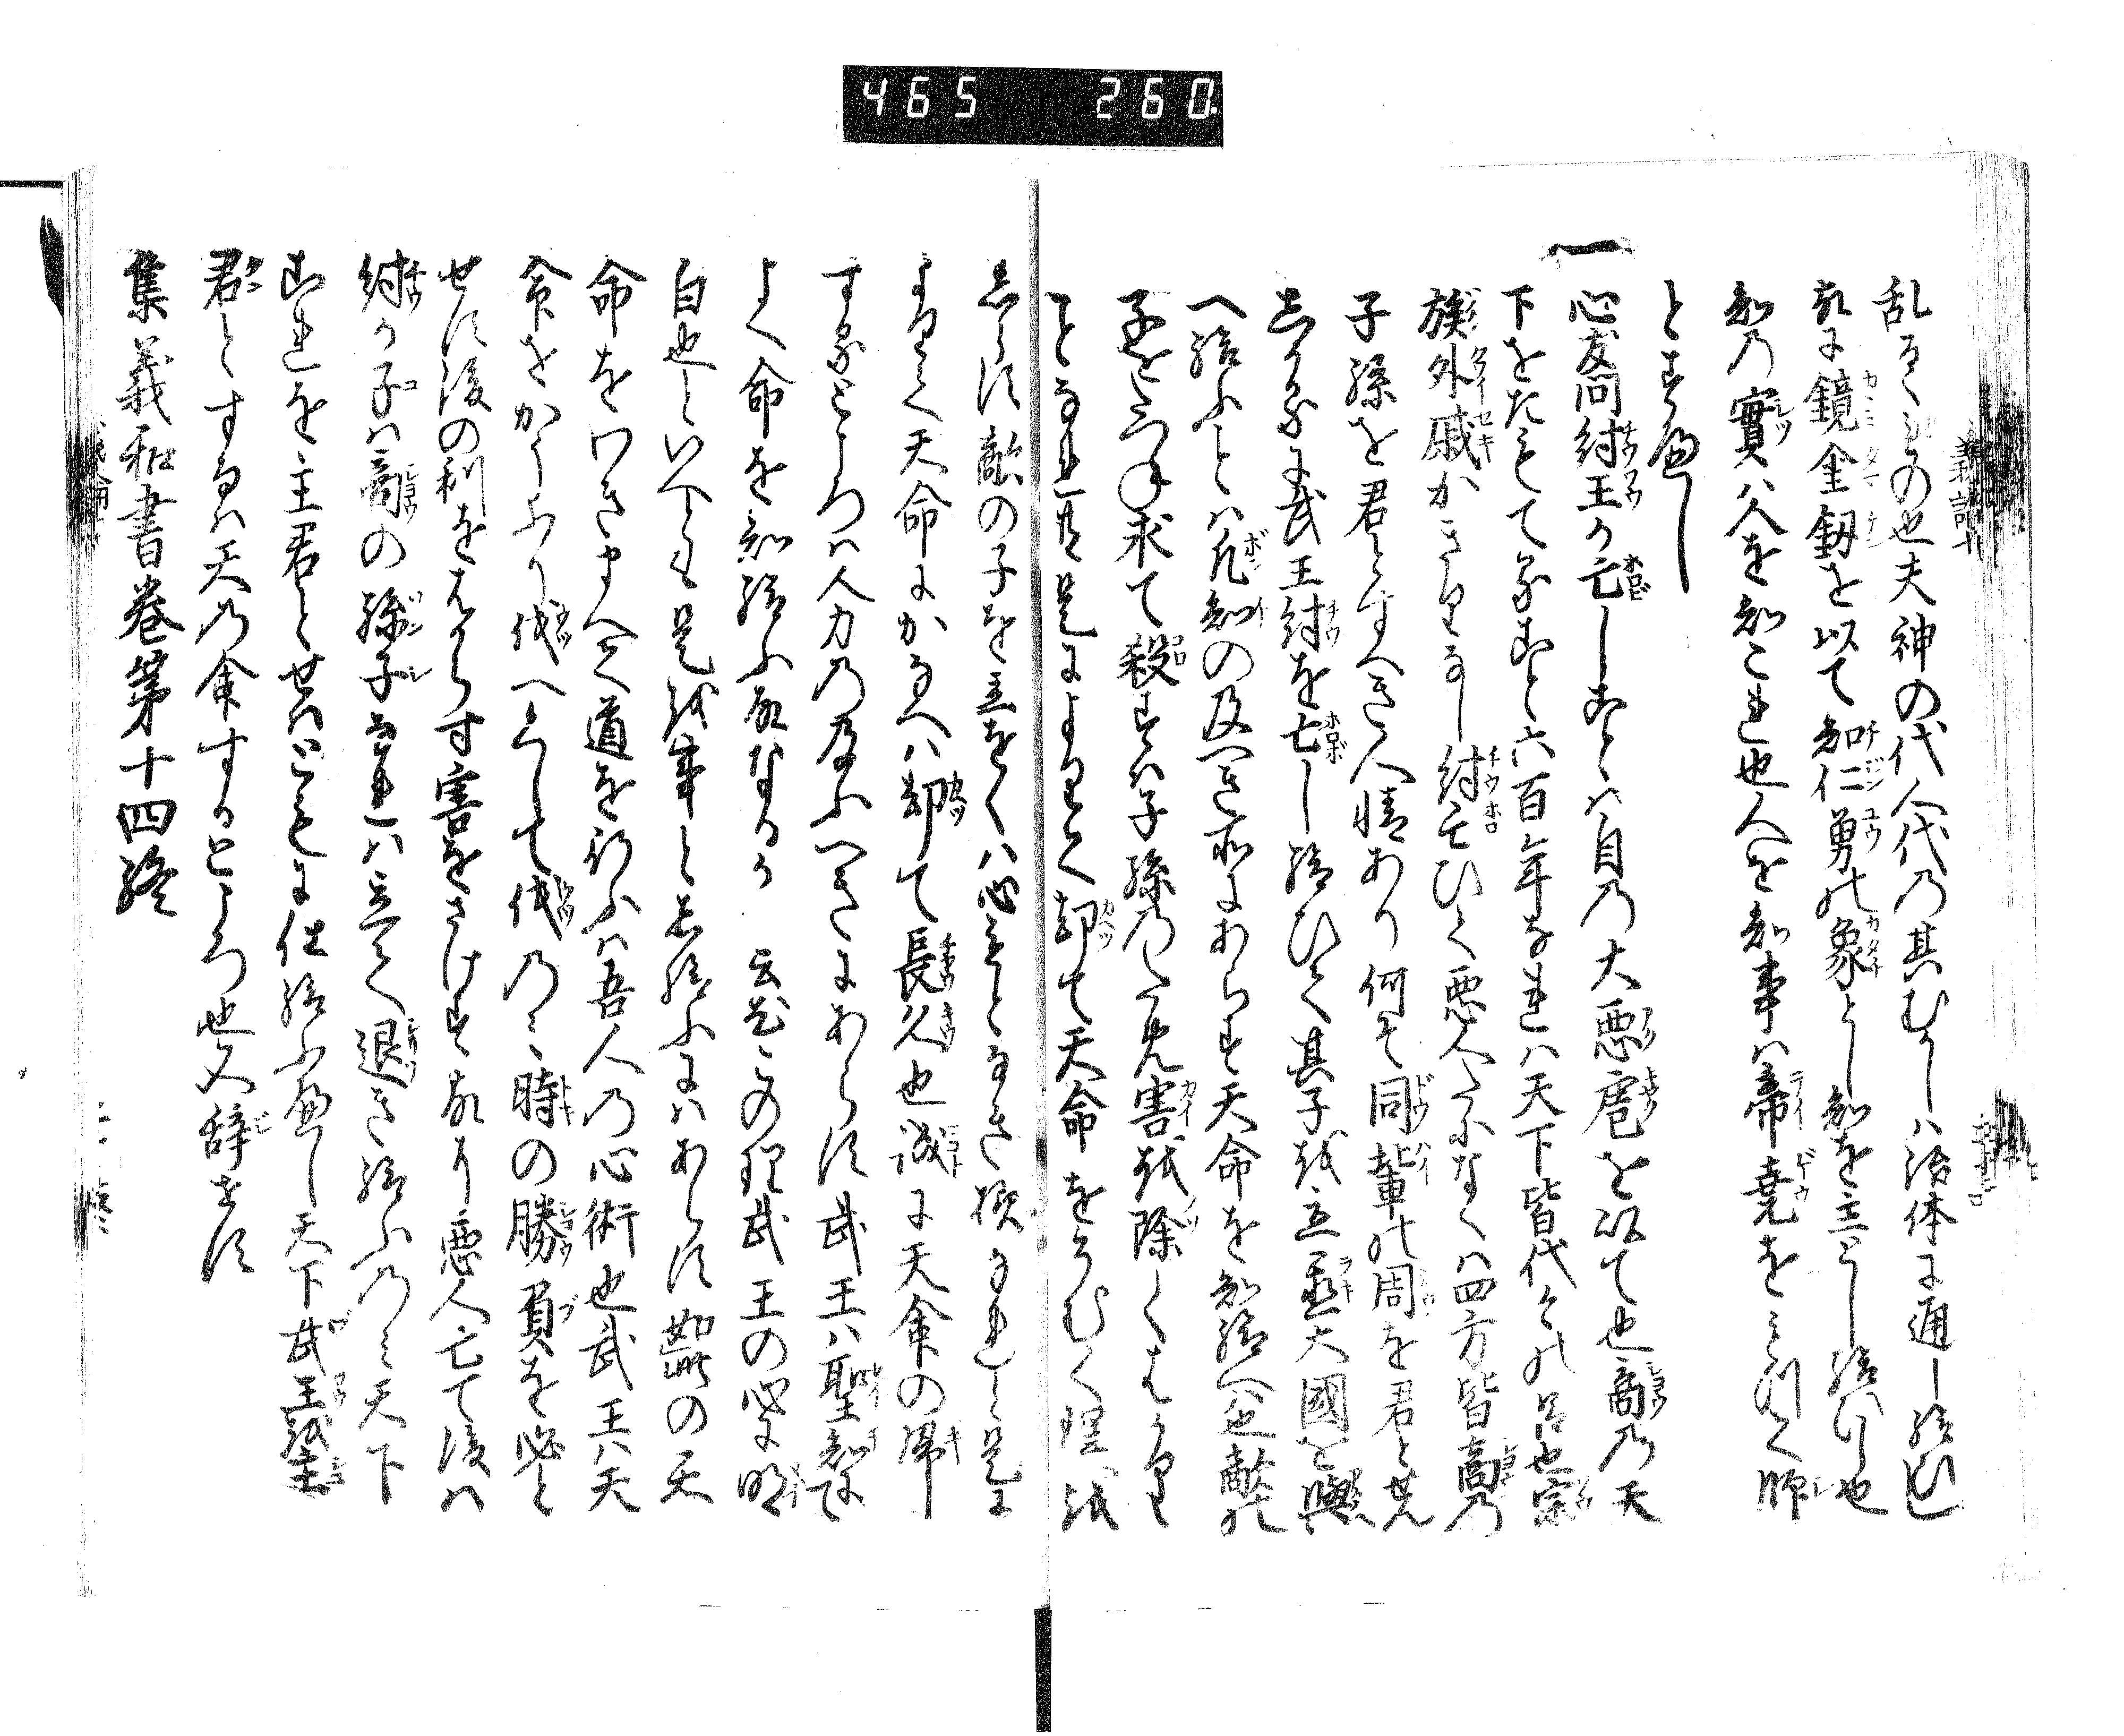 465 260
乱るゝもの也夫神の代人代乃其むかしハ治体に通し給へし
故に鏡金釼を以て知仁勇の象とし知を主とし給へり也
知乃實ハ人を知これ也人を知事ハ帝堯をみつへく師
とすへし
一心友問紂王か亡しことハ自乃大悪虐を以て也商乃天
下をたもてることと六百年なれハ天下皆代々の臣也宗
族外戚かきりなし紂亡ひて悪人たになくハ四方皆商乃
子孫を君とすへき人情あり何そ同輩の周を君とせん
しかるに武王紂を亡し給ひて其子を立置大國を與
へ給ふとハ凡知の及へき所にあらす天命を知給へは也敵の
子をたつね求て殺すハ子孫乃ため害を除くはかり
ことなれ共是によりて却て天命をそむく理を
しらす敵の子を立をくハ心もとなき様なれと是に
よりて天命にかなへハ却て長久也誠に天命の帰
するところハ人力乃及ふへきにあらす武王ハ聖知にて
よく命を知給ふ故なるか 云尤この理武王の心に明
白也といへとも是を事とし給ふにハあらす如此の天
命をわきまへて道を行ふハ吾人乃心術也武王ハ天
命をかうふり伐へくして伐乃ミ時の勝負を必と
せす後の利をはからす害をさけす故に悪人亡て後ハ
紂か子ハ商の孫子なれハ立て退き給ふ乃ミ天下
これを主君とせはともに仕給ふへし天下武王を主
君とするハ天乃命するところ也又辞せす
集義和書巻第十四終